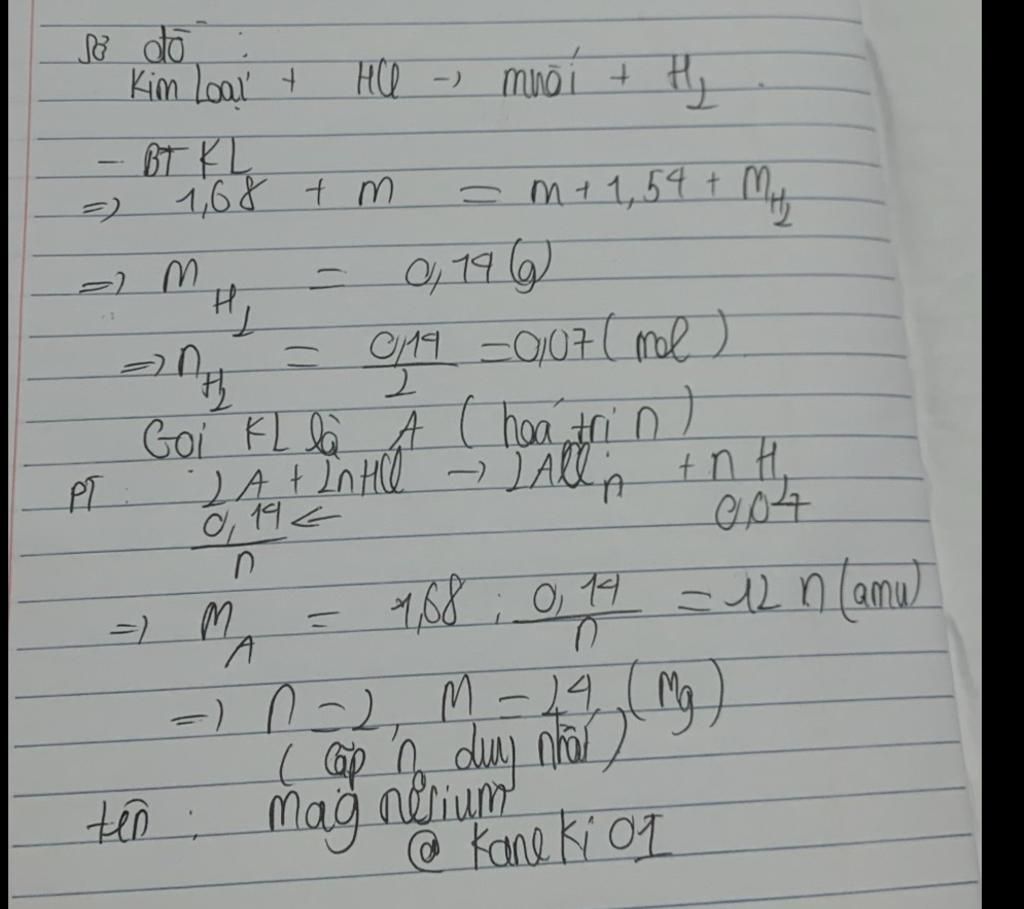 Sơ đồ :
Kim loại + HCl → muối + H2 .
- BT KL
=> 1,68 + m = m + 1,54 + mH2
=> mH2 = 0,14 (g)
=> nH2 = 0,14/2 = 0,07 (mol)
Gọi KL là A (hoá trị n)
PT : 2A + 2nHCl → 2ACln + nH2
0,14/n ← 0,07
=> MA = 1,68 : 0,14/n = 12 n (amu)
=> n = 2, M = 24 (Mg)
(cặp n duy nhất)
tên : Magnesium
@ Kaneki 01